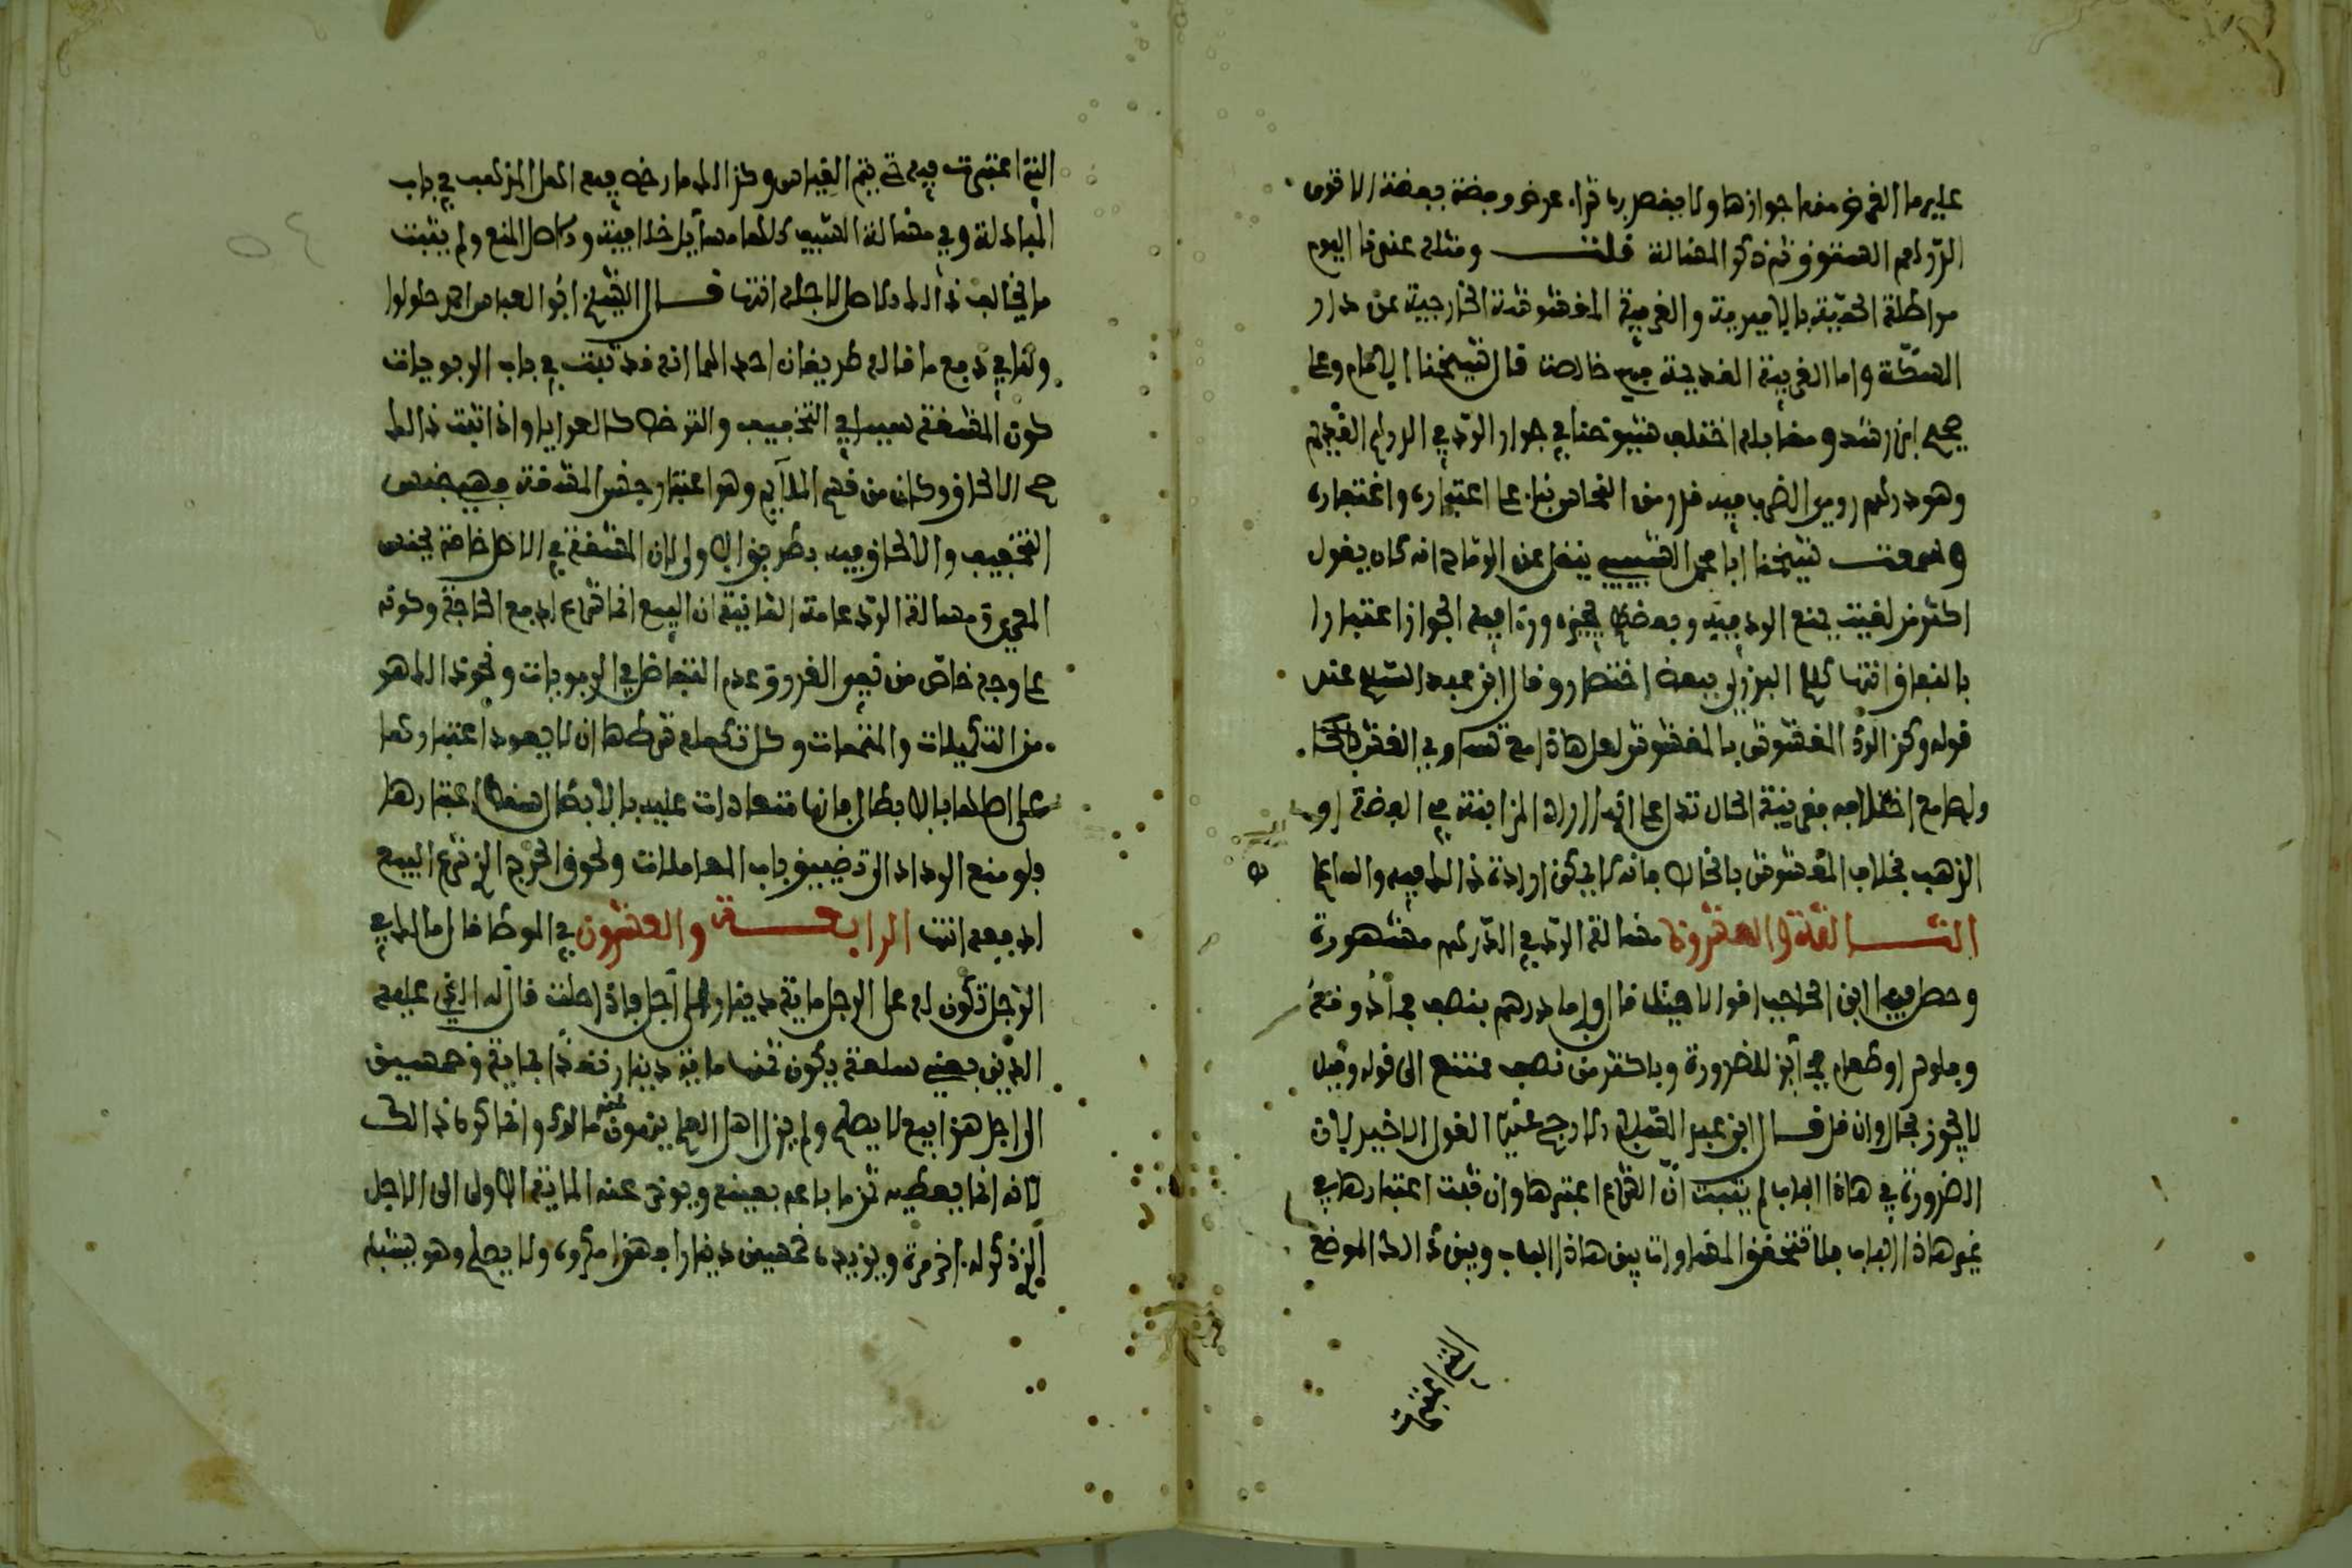 عليه ما الغرض منها جوازها ولا يقصد بها شراء عرض وفضة بفضة الا ترى
الدراهم الستوق ثم ذكر المسالة قلت ومثله عندنا اليوم
مراطلة بالاميرية والغربية المغشوشة الخارجية عن دار
السكة واما الغربية القديمة فهي خالصة قال شيخنا الامام وعلى
صحح ابن رشد ومقابله اختلف شيوخنا في جواز الرد في الدرهم القديم
وهو درهم رومي الضرب فيه قدر من النحاس بناء على اعتباره واغتفاره
وسمعت شيخنا ابا محمد الشبيبي ينقل عن الرماح انه كان يقول
اكثر من لقيت يمنع الرد فيه وبعضهم يجيزه وراى فيه الجواز اعتبارا
بالنفاق انتهى كلام البرزلي ببعض اختصار وقال ابن عبد السلام عند
قوله وكذا المغشوش بالمغشوش لعل هاذا مع تساوي الغش
ولعل مع اختلافه فقرينة الحال تدل على انهما ارادا المزابنة في الفضة او
الذهب بخلاف المغشوش بالخالص فانه لا يمكن ارادة ذالك فيه والله اعلم
الثالثة والعشرون مسالة الرد في الدرهم مشهورة
وحصل فيها ابن الحاجب اقوالا هيث قال واما درهم بنصف فما دونه
وفلوس او طعام فجائز للضرورة وباكثر من نصف ممتنع الى قوله وقيل
لا يجوز بحال وان قل قال ابن عبد السلام والارجح عندي القول الاخير لان
الضرورة في هاذا الباب لم يثبت ان الشرع اعتبرها وان ثبت اعتبارها في
غير هاذا الباب فلم تتحقق المساواة بين هاذا الباب وبين ذالك الموضع
التي اعتبرت
التي اعتبرت فيه حتى يتم القياس وكذالك ما رخص فيه اهل المذهب في باب
المبادلة وفي مسالة السبيكة كلها مسايل خلافية والاصل المنع ولم يثبت
ما يخالف ذالك الاصل لاجله انتهى قال الشيخ ابو العباس احمد حلولوا
ولنا في دفع ما قاله طريقان احدهما انه قد ثبت في باب الربويات
كون المشقة سببا في التخفيف والترخص كالعرايا واذا ثبت ذالك
صح الالحاق وكان من قسم الملايم وهو اعتبار جنس المشقة في جنس
التخفيف والالحاق فيه بطريق الاولى لان المشقة في الاصل خاصة بجنس
المعري ومسالة الرد عامة الثانية ان البيع انما شرع لدفع الحاجة وكونه
على وجه خاص من نفي الغرر وعدم التفاضل في الربويات ونحو ذالك هو
من التكميلات والمتممات وكل تكملة شرطها ان لا يعود اعتبارها
على اصلها بالابطال فانها متى عادت عليه بالابطال سقط اعتبارها
فلو منع الرد ادى الى تضييق باب المعاملات ولحوق الحرج الذي شرع البيع
لدفعه انتهى الرابعة والعشرون في الموطا قال مالك في
الرجل تكون له على الرجل ماية دينار الى اجل فاذا حلت قال له الذي عليه
الدين بعني سلعة يكون ثمنها ماية دينار نقدا بماية وخمسين
الى اجل هذا بيع لا يصلح ولم يزل اهل العلم ينهون عنه مالك وانما كره ذالك
لانه انما يعطيه ثمن ما باعه بعينه ويوخر عنه الماية الاولى الى الاجل
الذي ذكر له اخر مرة ويزيده خمسين دينارا فهذا مكروه ولا يصلح وهو يشبه